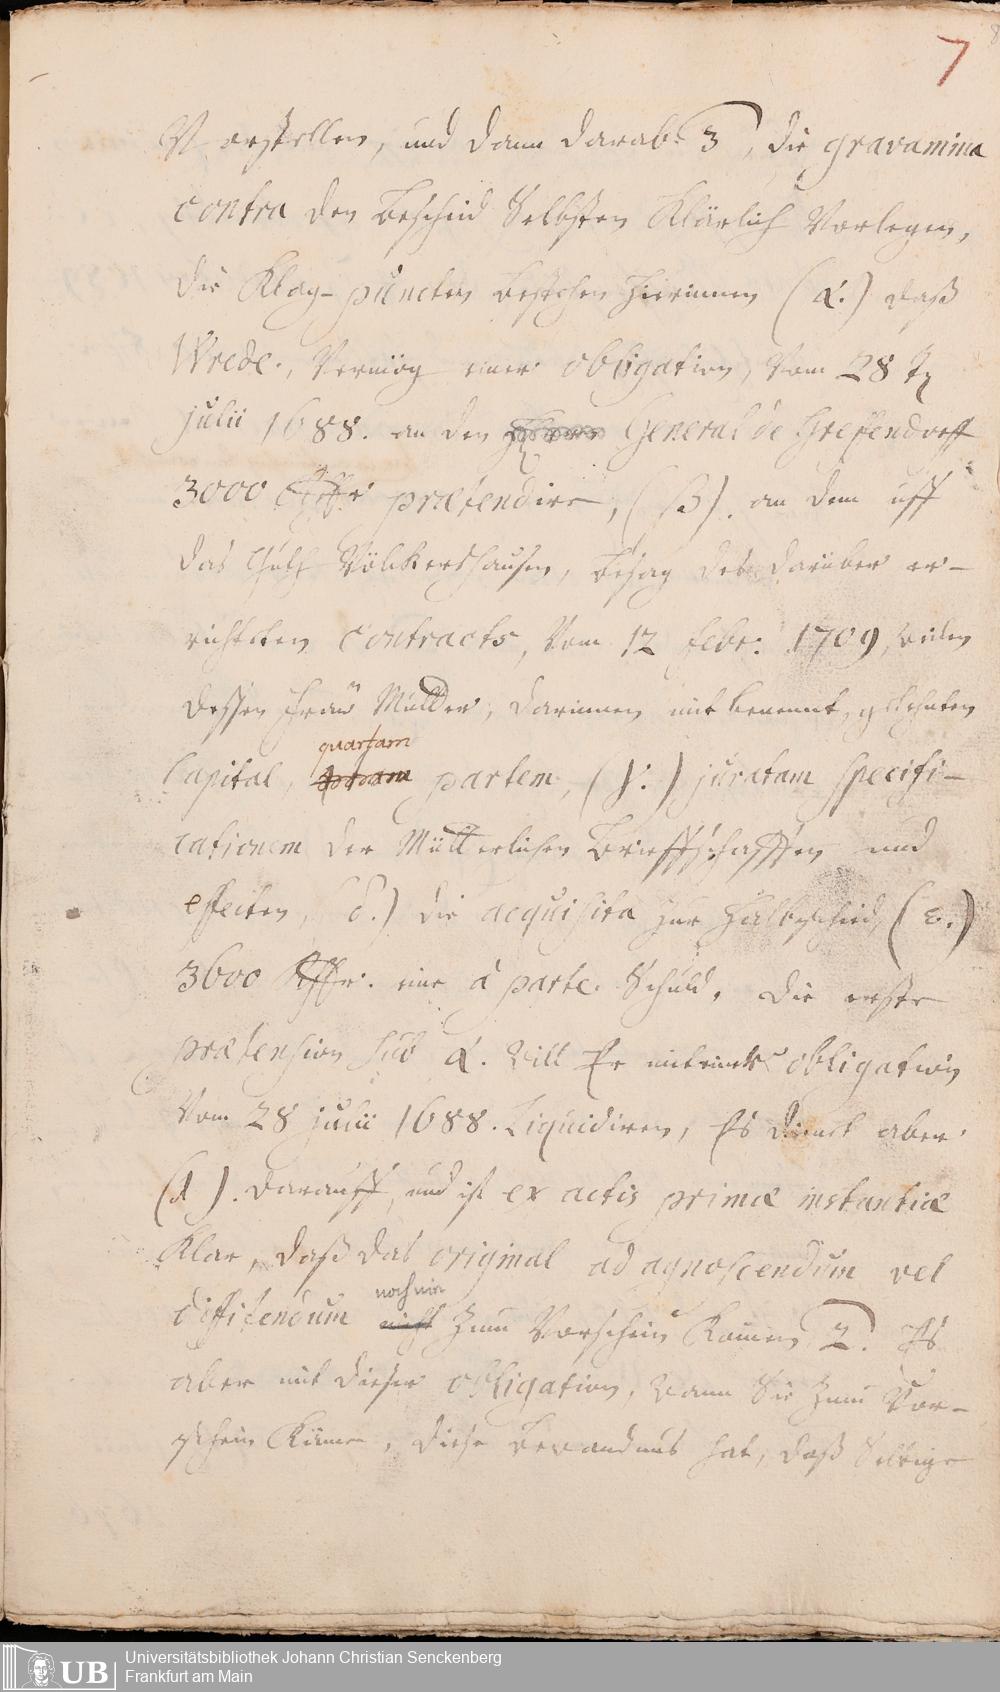 7
Verstellen, und dann darab 3, die gravamina
contra den Bescheid Selbsten Klärlich Vorlegen,
die Klag-puncten bestehen hierinnen (α.) daß
Wrede, Vermög einer obligation, Vom 28
julii 1688. an den General de Grefendorff
3000 prætendire, (β). an dem uff
das Guth Völckershausen, besag des darüber er-
richteten Contracts, Vom 12 febr. 1709, von
dessen Frau Mutter, darinnen mit benennt, gelehnten
Capital, quartam partem, (γ.) juratam specifi-
cationem der Mütterlichen Brieffschafften und
effecten, (δ.) die acquisita zur Halbschied, (ε.)
3600 eine à parte Schuld. die erste
prætension sub α. will Er mit einer obligation
Vom 28 julii 1688. Liquidiren, Es dienet aber
(1). darauff, und ist ex actis primæ instantiæ
Klar, daß das original ad agnoscendum vel
diffitendum noch nie zum Vorschein Kommen 2. Es
aber mit dieser obligation, wann Sie zum Vor-
schein Käme, diese bewandnus hat, daß Selbige
UB Universitätsbibliothek Johann Christian Senckenberg
Frankfurt am Main